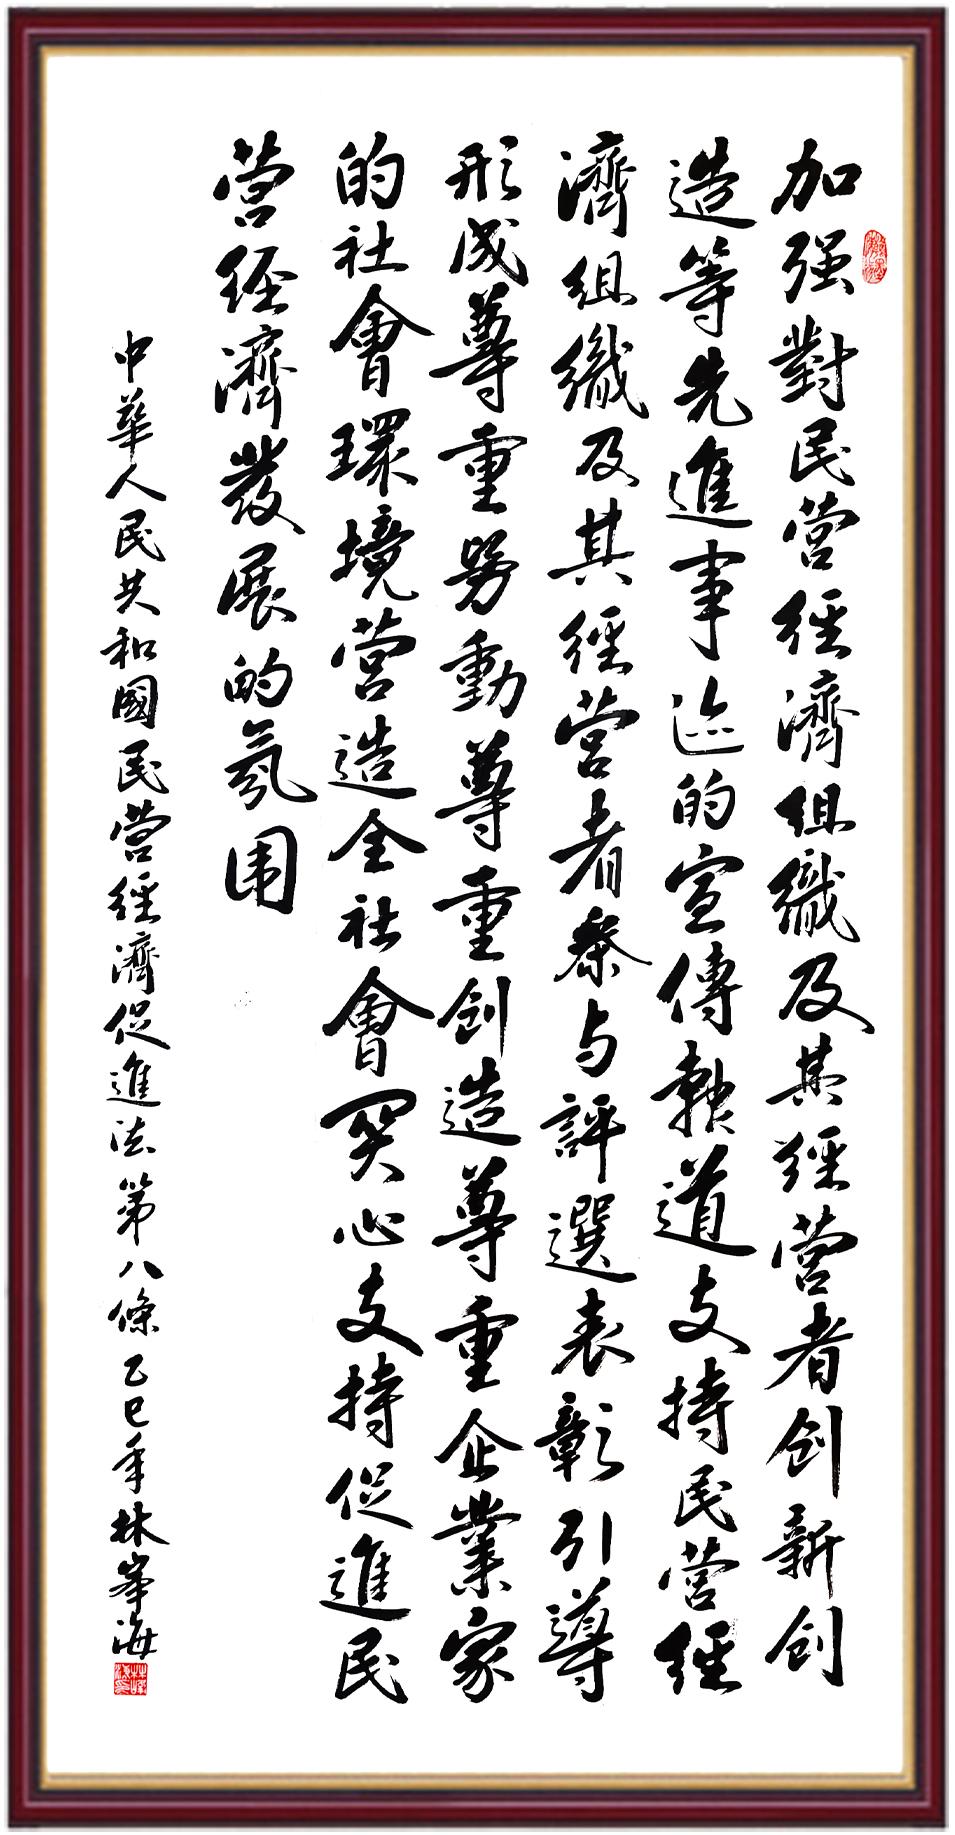 加强對民营經濟组織及其經营者创新创
造等先進事迹的宣傳報道支持民营經
濟组織及其經营者參与評選表彰引導
形成尊重勞動尊重创造尊重企業家
的社會環境营造全社會关心支持促進民
营经濟發展的氛围
中華人民共和國民营經濟促進法第八條乙巳年林峯海